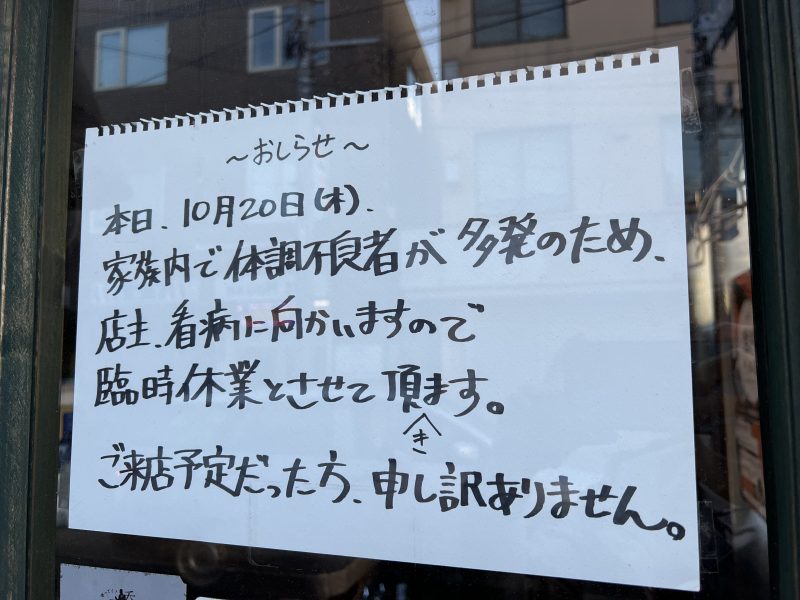 ～おしらせ～
本日、10月20日(木)、
家族内で体調不良者が多発のため、
店主、看病に向かいますので
臨時休業とさせて頂きます。
ご来店予定だった方、申し訳ありません。